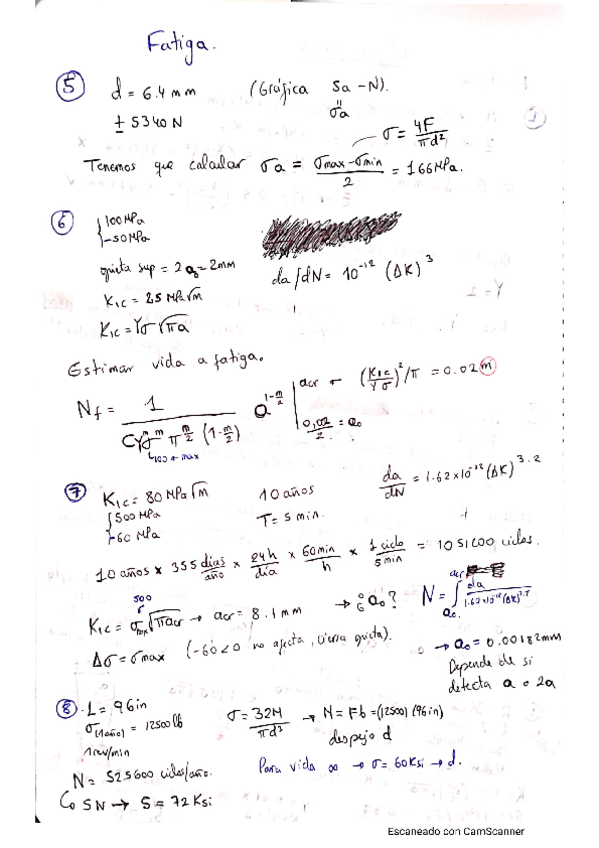 Fatiga.
5 d = 6.4 mm (Gráfica Sa-N).
± 5340 N σa
σ = 4F/πd²
Tenemos que calcular σa = (σmax - σmin)/2 = 166 MPa.
6 { 100 MPa
-50 MPa
grieta sup = 2a₀ = 2mm da/dN = 10⁻¹² (ΔK)³
K1c = 25 MPa√m
K1c = Yσ√πa
Estimar vida a fatiga.
Nf = 1/(C Yᵐ σᵐ π^(m/2) (1-m/2)) a^(1-m/2) | acr → (K1c/Yσ)²/π = 0.02 m
0,002/2 = a₀
↳ 100 σ max
7 K1c = 80 MPa√m 10 años da/dN = 1.62x10⁻¹² (ΔK)^3.2
{ 500 MPa T = 5 min.
-60 MPa
10 años x 355 días/año x 24h/día x 60min/h x 1 ciclo/5min = 1051200 ciclos.
500
K1c = σmax √πacr → acr = 8.1 mm → ¿a₀? N = ∫ acr a₀ da/1.62x10⁻¹² (ΔK)^3.2
Δσ = σmax (-60<0 no afecta, cierra grieta). → a₀ = 0.00182mm
Depende de si
detecta a o 2a
8 L = 96 in
σ(1año) = 12500 lb σ = 32M/πd³ → M = Fb = (12500) (96in)
1 rev/min despejo d
N = 525600 ciclos/año. Para vida ∞ → σ = 60Ksi → d.
↳ SN → S = 72 Ksi
Escaneado con CamScanner